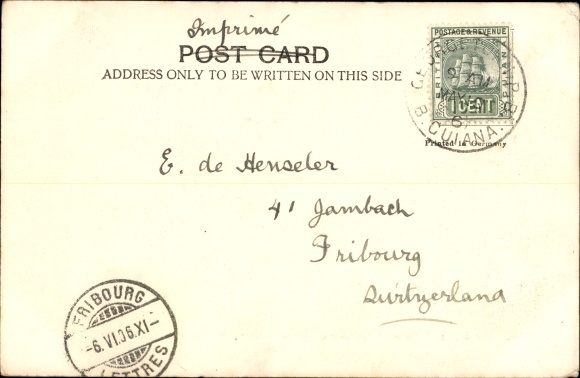 Imprimé
POST CARD
ADDRESS ONLY TO BE WRITTEN ON THIS SIDE
POSTAGE & REVENUE
BRITISH
GUIANA
1 CENT
B. GUIANA
Printed in Germany
E. de Henseler
41 Jambach
Fribourg
Switzerland
FRIBOURG
-6.VI.06.XI-
LETTRES